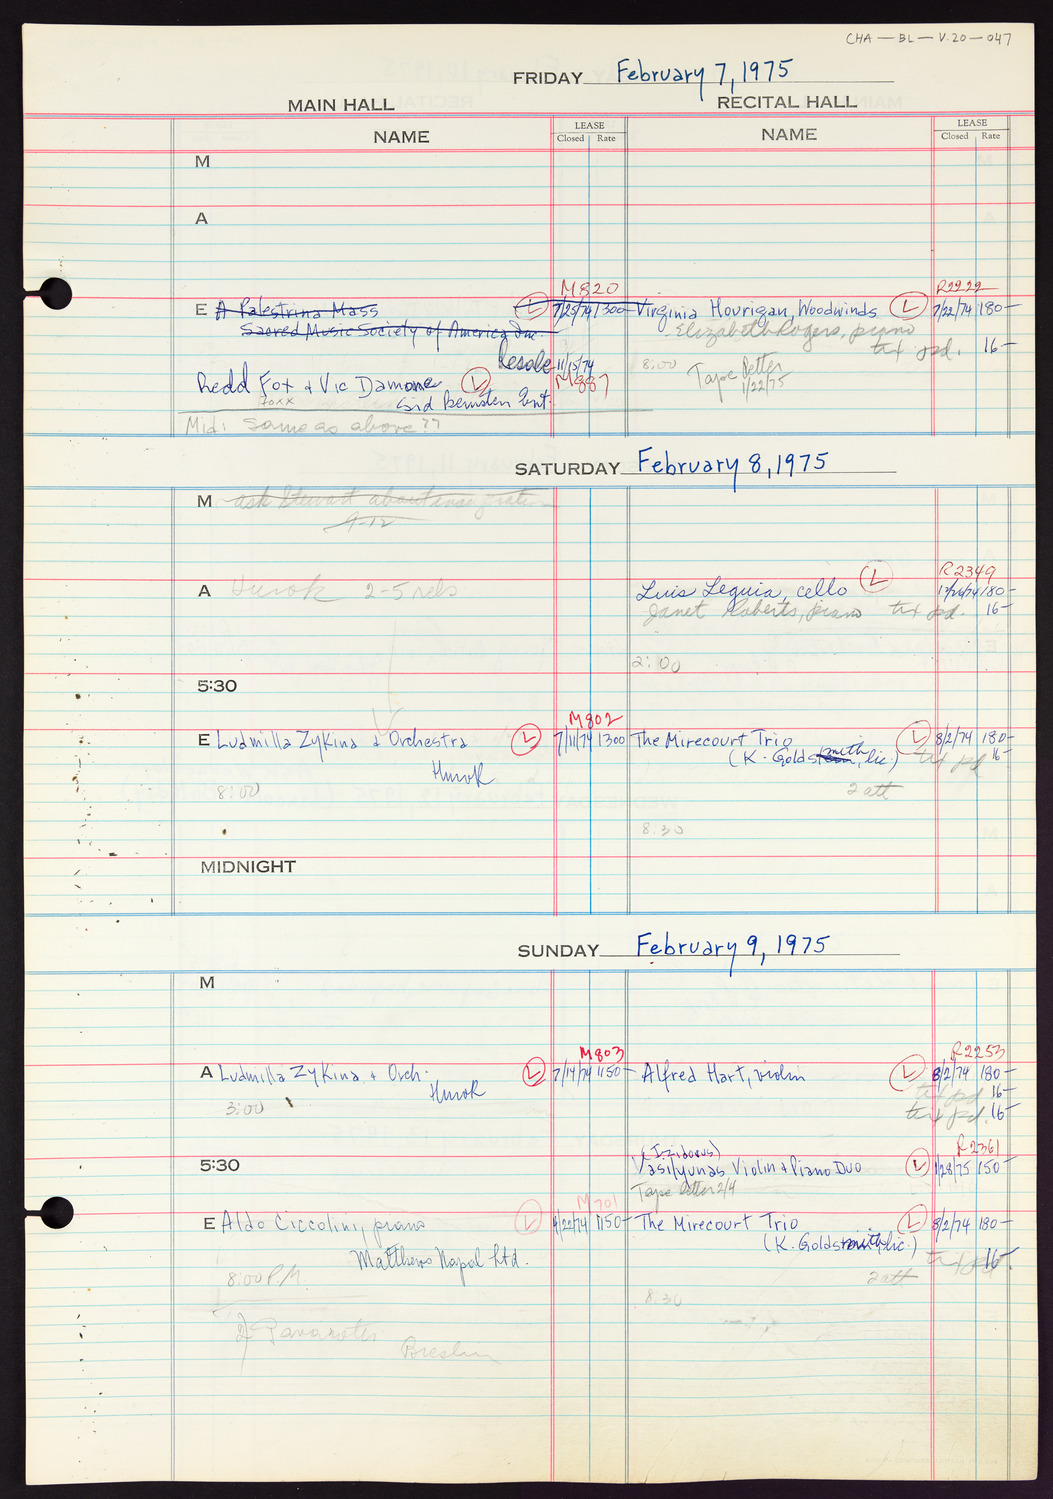 CHA — BL — V.20 — 047
FRIDAY February 7, 1975
MAIN HALL RECITAL HALL
NAME LEASE Closed Rate NAME LEASE Closed Rate
M
A
M820 R2222
E A Palestrina Mass L 7/25/74 1300 Virginia Hourigan, Woodwinds L 7/22/74 180—
Sacred Music Society of America, Inc. Elizabeth Rogers, piano
txt pd. 16—
Resale 11/15/74 8:00 Tape letter
Redd Fox & Vic Damone L M887 1/22/75
foxx Sid Bernstein Ent.
Mid: Same as above??
SATURDAY February 8, 1975
M ask Stewart about
9-12
R2349
A Hurok 2-5 rehs Luis Leguia, cello L 180—
Janet Roberts, piano txt pd. 16—
2:00
5:30
M802
E Ludmilla Zykina & Orchestra L 7/11/74 1300 The Mirecourt Trio L 8/2/74 180—
Hurok (K. Goldsmith, lic.) txt pd 16—
8:00 2 att
8:30
MIDNIGHT
SUNDAY February 9, 1975
M
M803 R2253
A Ludmilla Zykina & Orch. L 7/14/74 1150— Alfred Hart, violin L 8/2/74 180—
Hurok txt pd 16—
3:00 txt pd. 16—
(Izidorus) R2361
5:30 Vasilyunas Violin & Piano Duo L 1/28/75 150—
Tape letter 2/4
M701
E Aldo Ciccolini, piano L 4/22/74 1150— The Mirecourt Trio L 8/2/74 180—
Matthews Napal Ltd. (K. Goldsmith, lic.)
8:00 P.M. 2 att txt pd 16—
8:30
Pavarotti
Breslin